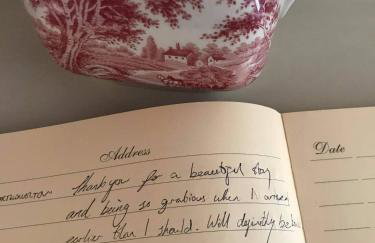 Address
Date
Thank you for a beautiful stay
and being so gratious when I arrived
earlier than I should. Will definitely be